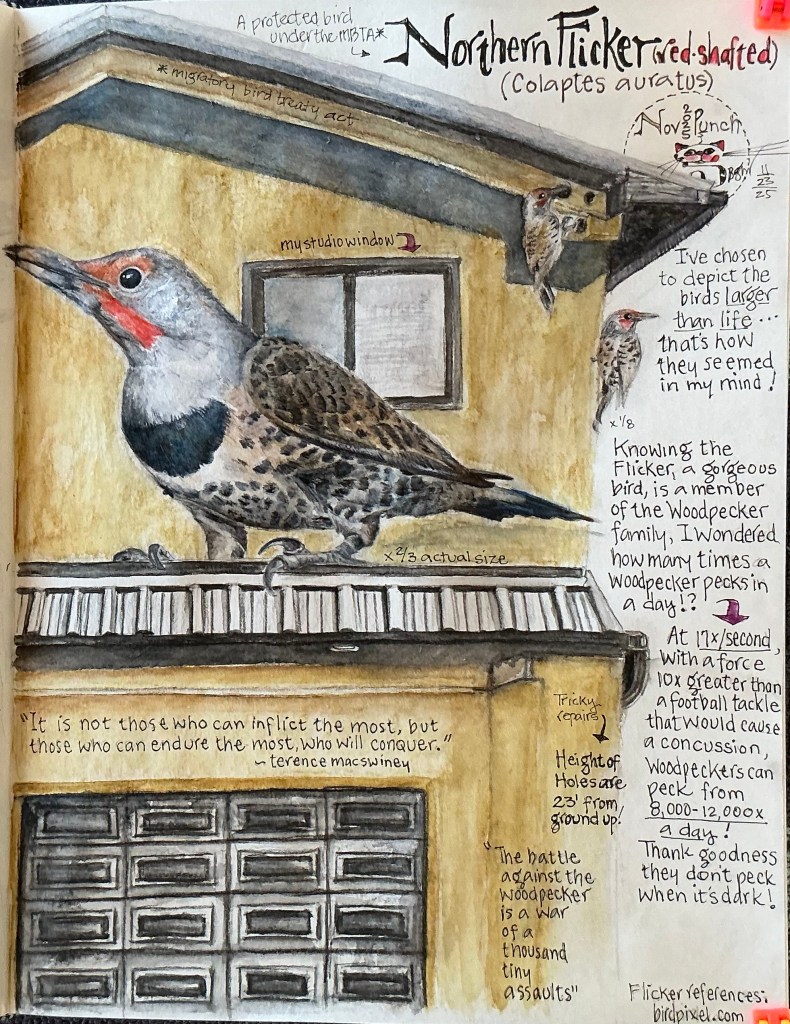 A protected bird
under the MBTA*
Northern Flicker (red-shafted)
(Colaptes auratus)
* migratory bird treaty act
Nov 2025 Punch
Bgm 11
23
25
my studio window
I've chosen
to depict the
birds larger
than life...
that's how
they seemed
in my mind!
x 1/8
Knowing the
Flicker, a gorgeous
bird, is a member
of the Woodpecker
family, I wondered
how many times a
Woodpecker pecks in
a day!?
x 2/3 actual size
At 17x/second,
with a force
10x greater than
a football tackle
that would cause
a concussion,
Woodpeckers can
peck from
8,000-12,000x
a day!
Thank goodness
they don't peck
when it's dark!
Tricky
repairs
Height of
Holes are
23' from
ground up!
"It is not those who can inflict the most, but
those who can endure the most, who will conquer."
~ terence macswiney
"The battle
against the
woodpecker
is a war
of a
thousand
tiny
assaults"
Flicker references:
birdpixel.com